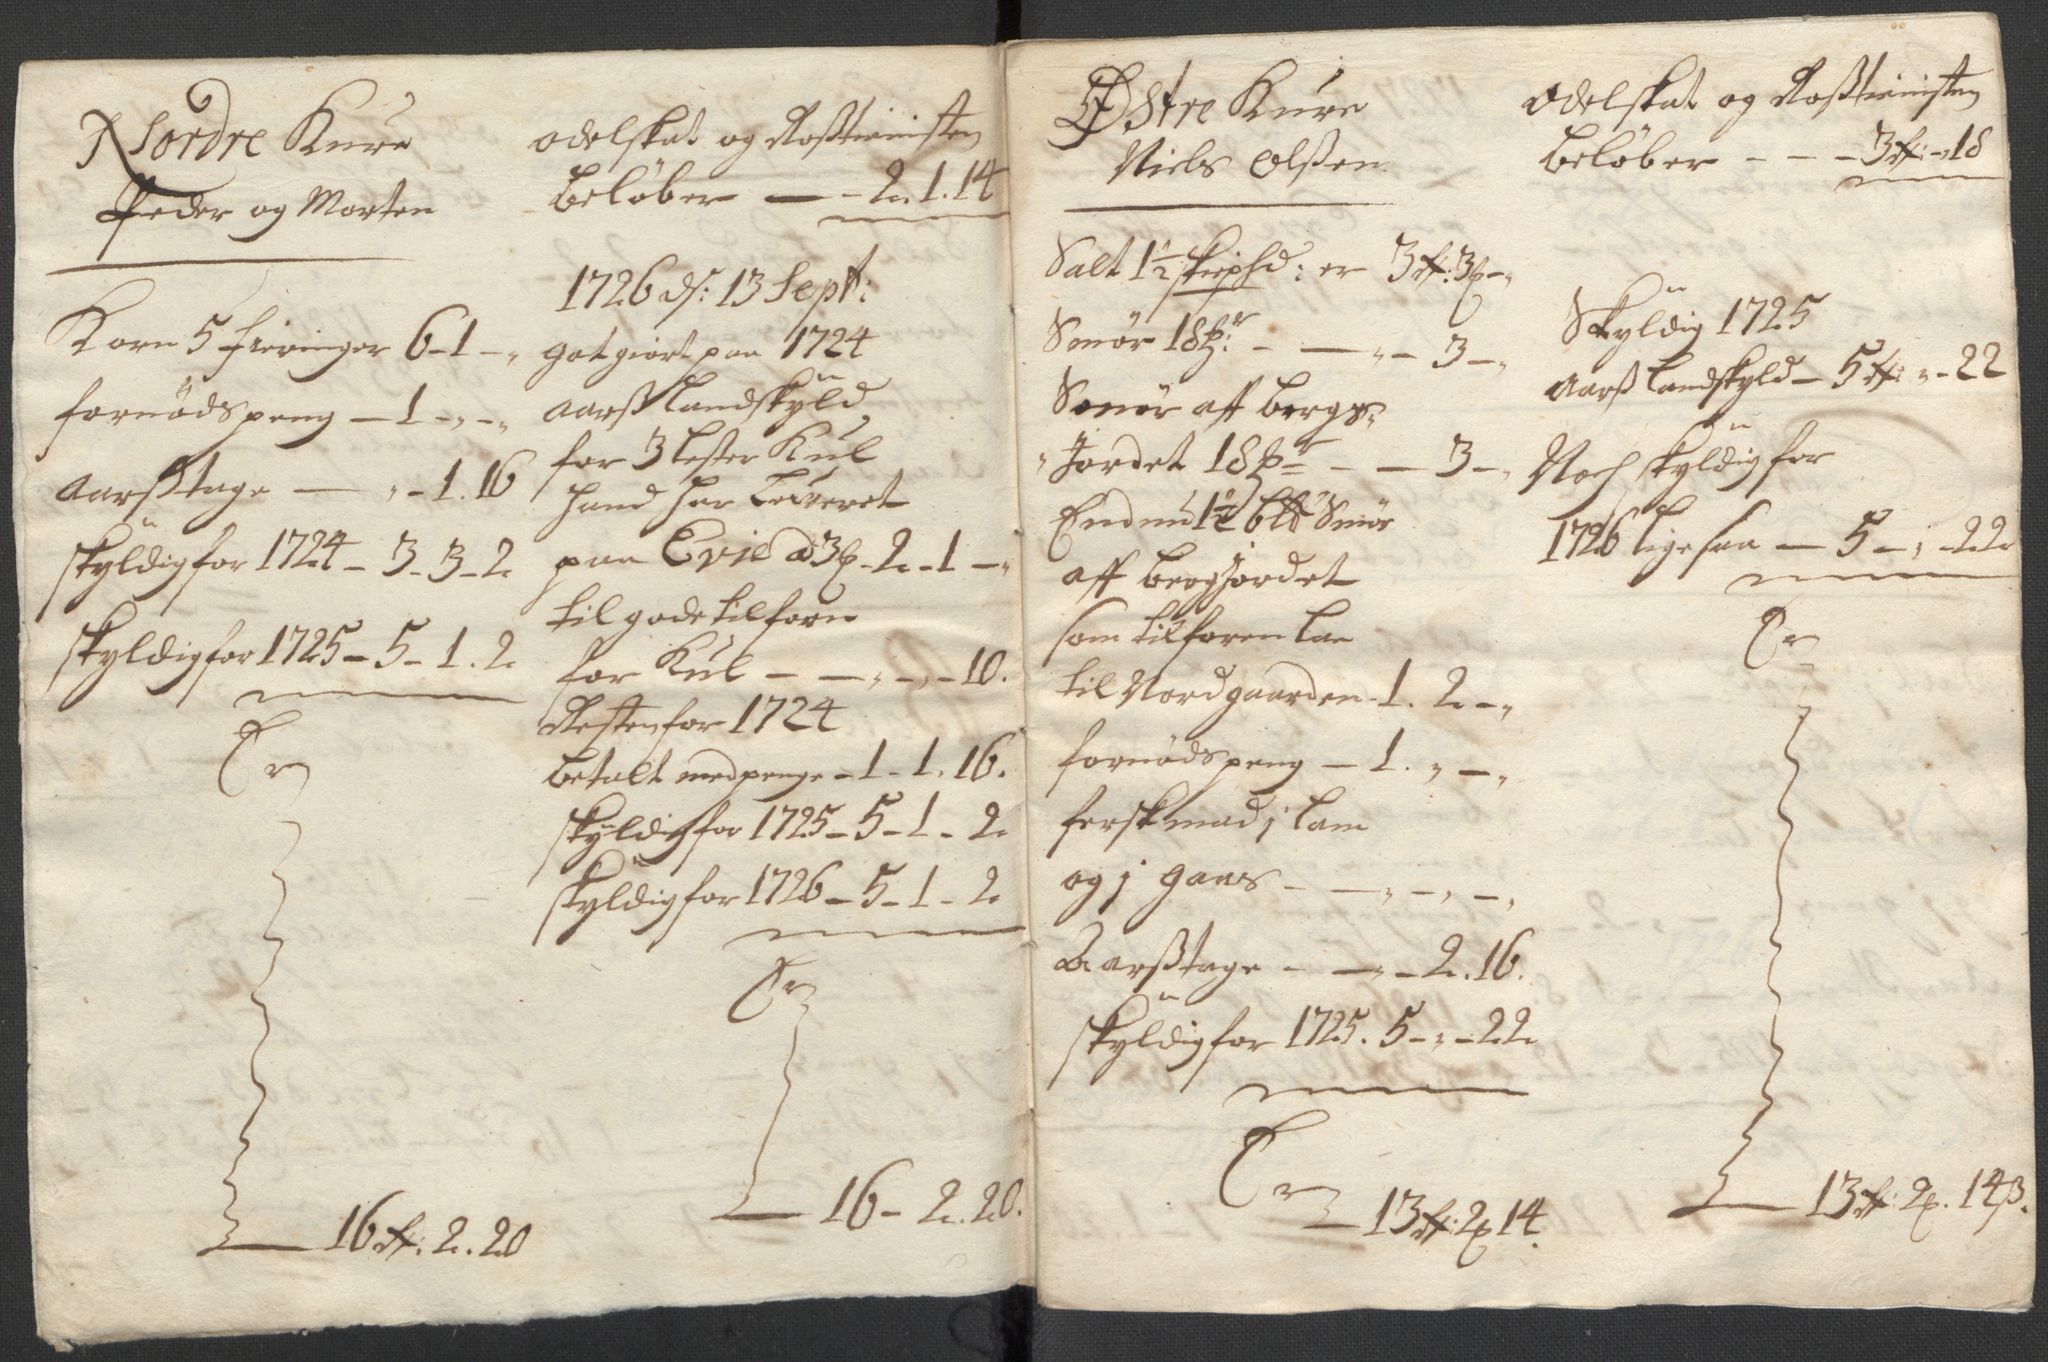 Nordre Kure
Peder og Morten
Korn 5 fieringer 6-1-"
fornødspeng - 1-"-"
Aarsstage - "-1.16
skÿldig for 1724 - 3-3-2
skyldig for 1725 - 5-1.2
Er
16 rd: 2. 20
odelskat og Rosstienisten
beløber - - 2. 1. 14
1726 ds: 13 Sept:
godgiort paa 1724
Aarss Landskÿld
for 3 Lester Kul
hand har Leveret
paa Evie a 3 - 2-1-"
til gode tilforn
for Kul - - "-"-10.
Resten for 1724
betalt med penge - 1-1.16.
skÿldig for 1725 - 5-1-2
skÿldig for 1726 - 5-1-2
Er
16-2.20.
Østre Kure
Niels Olssen
Salt 1½ skiphd: er 3 rd: 3-"
Smør 18 - - "-3-"
Smør aff bergs-
Jordet 18 - - 3-"
Endnu 1½ Smør
aff bergjordet
som tilforen laa
til Nordgaarden 1. 2-"
fornødspeng - 1."-"
fersk mad j Lam
og j gaas - - "-"-"
Aarsstage - - "-2.16.
skÿldig for 1725. 5-"-22
Er
13 rd: 2 14.
odelskat og Rosstienisten
beløber - - - 3 rd:-"18
Skÿldig 1725
Aarss Landskyld - 5 rd: "-22
Noch skÿldig for
1726 ligesaa - 5-"-22
Er
13 rd: 2. 14 β.